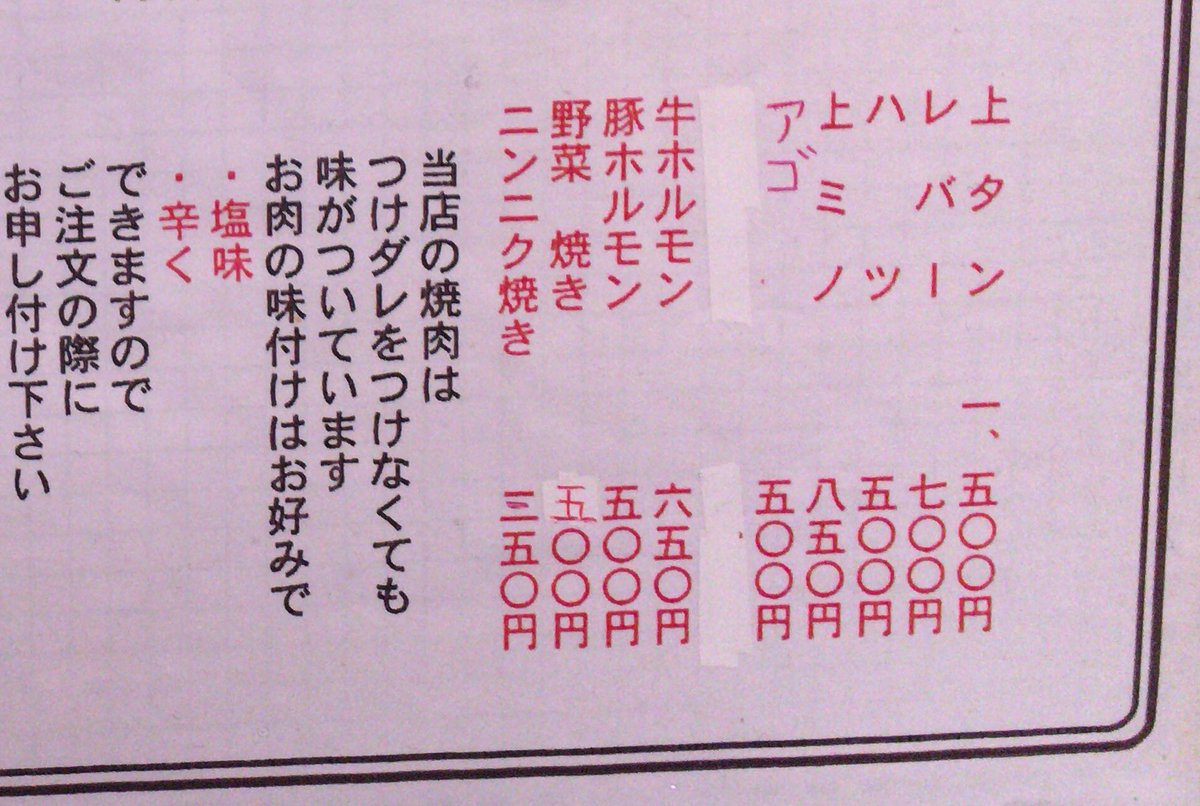 上タン 一、五〇〇円
レバー 七〇〇円
ハツ 五〇〇円
上ミノ 八五〇円
アゴ 五〇〇円
牛ホルモン 六五〇円
豚ホルモン 五〇〇円
野菜 焼き 五〇〇円
ニンニク焼き 三五〇円
当店の焼肉は
つけダレをつけなくても
味がついています
お肉の味付けはお好みで
・塩味
・辛く
できますので
ご注文の際に
お申し付け下さい